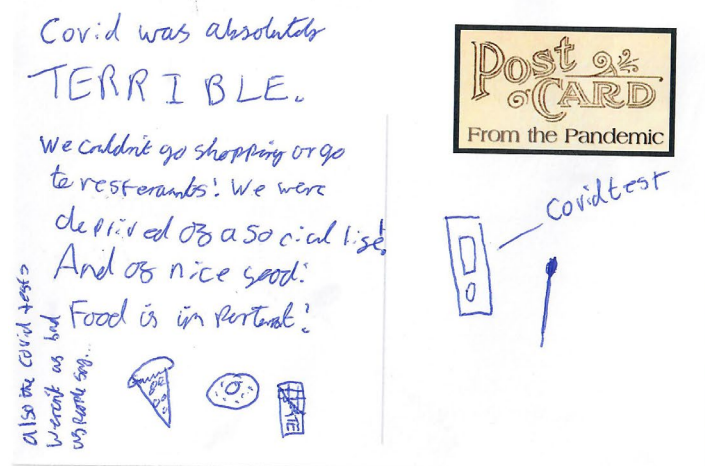 Covid was absolutely
TERRIBLE.
We couldn't go shopping or go
to resteraunts! We were
deprived of a social life!
And of nice food!
Food is important!
also the covid tests
weren't as bad
as people say...
POST
CARD
From the Pandemic
covid test